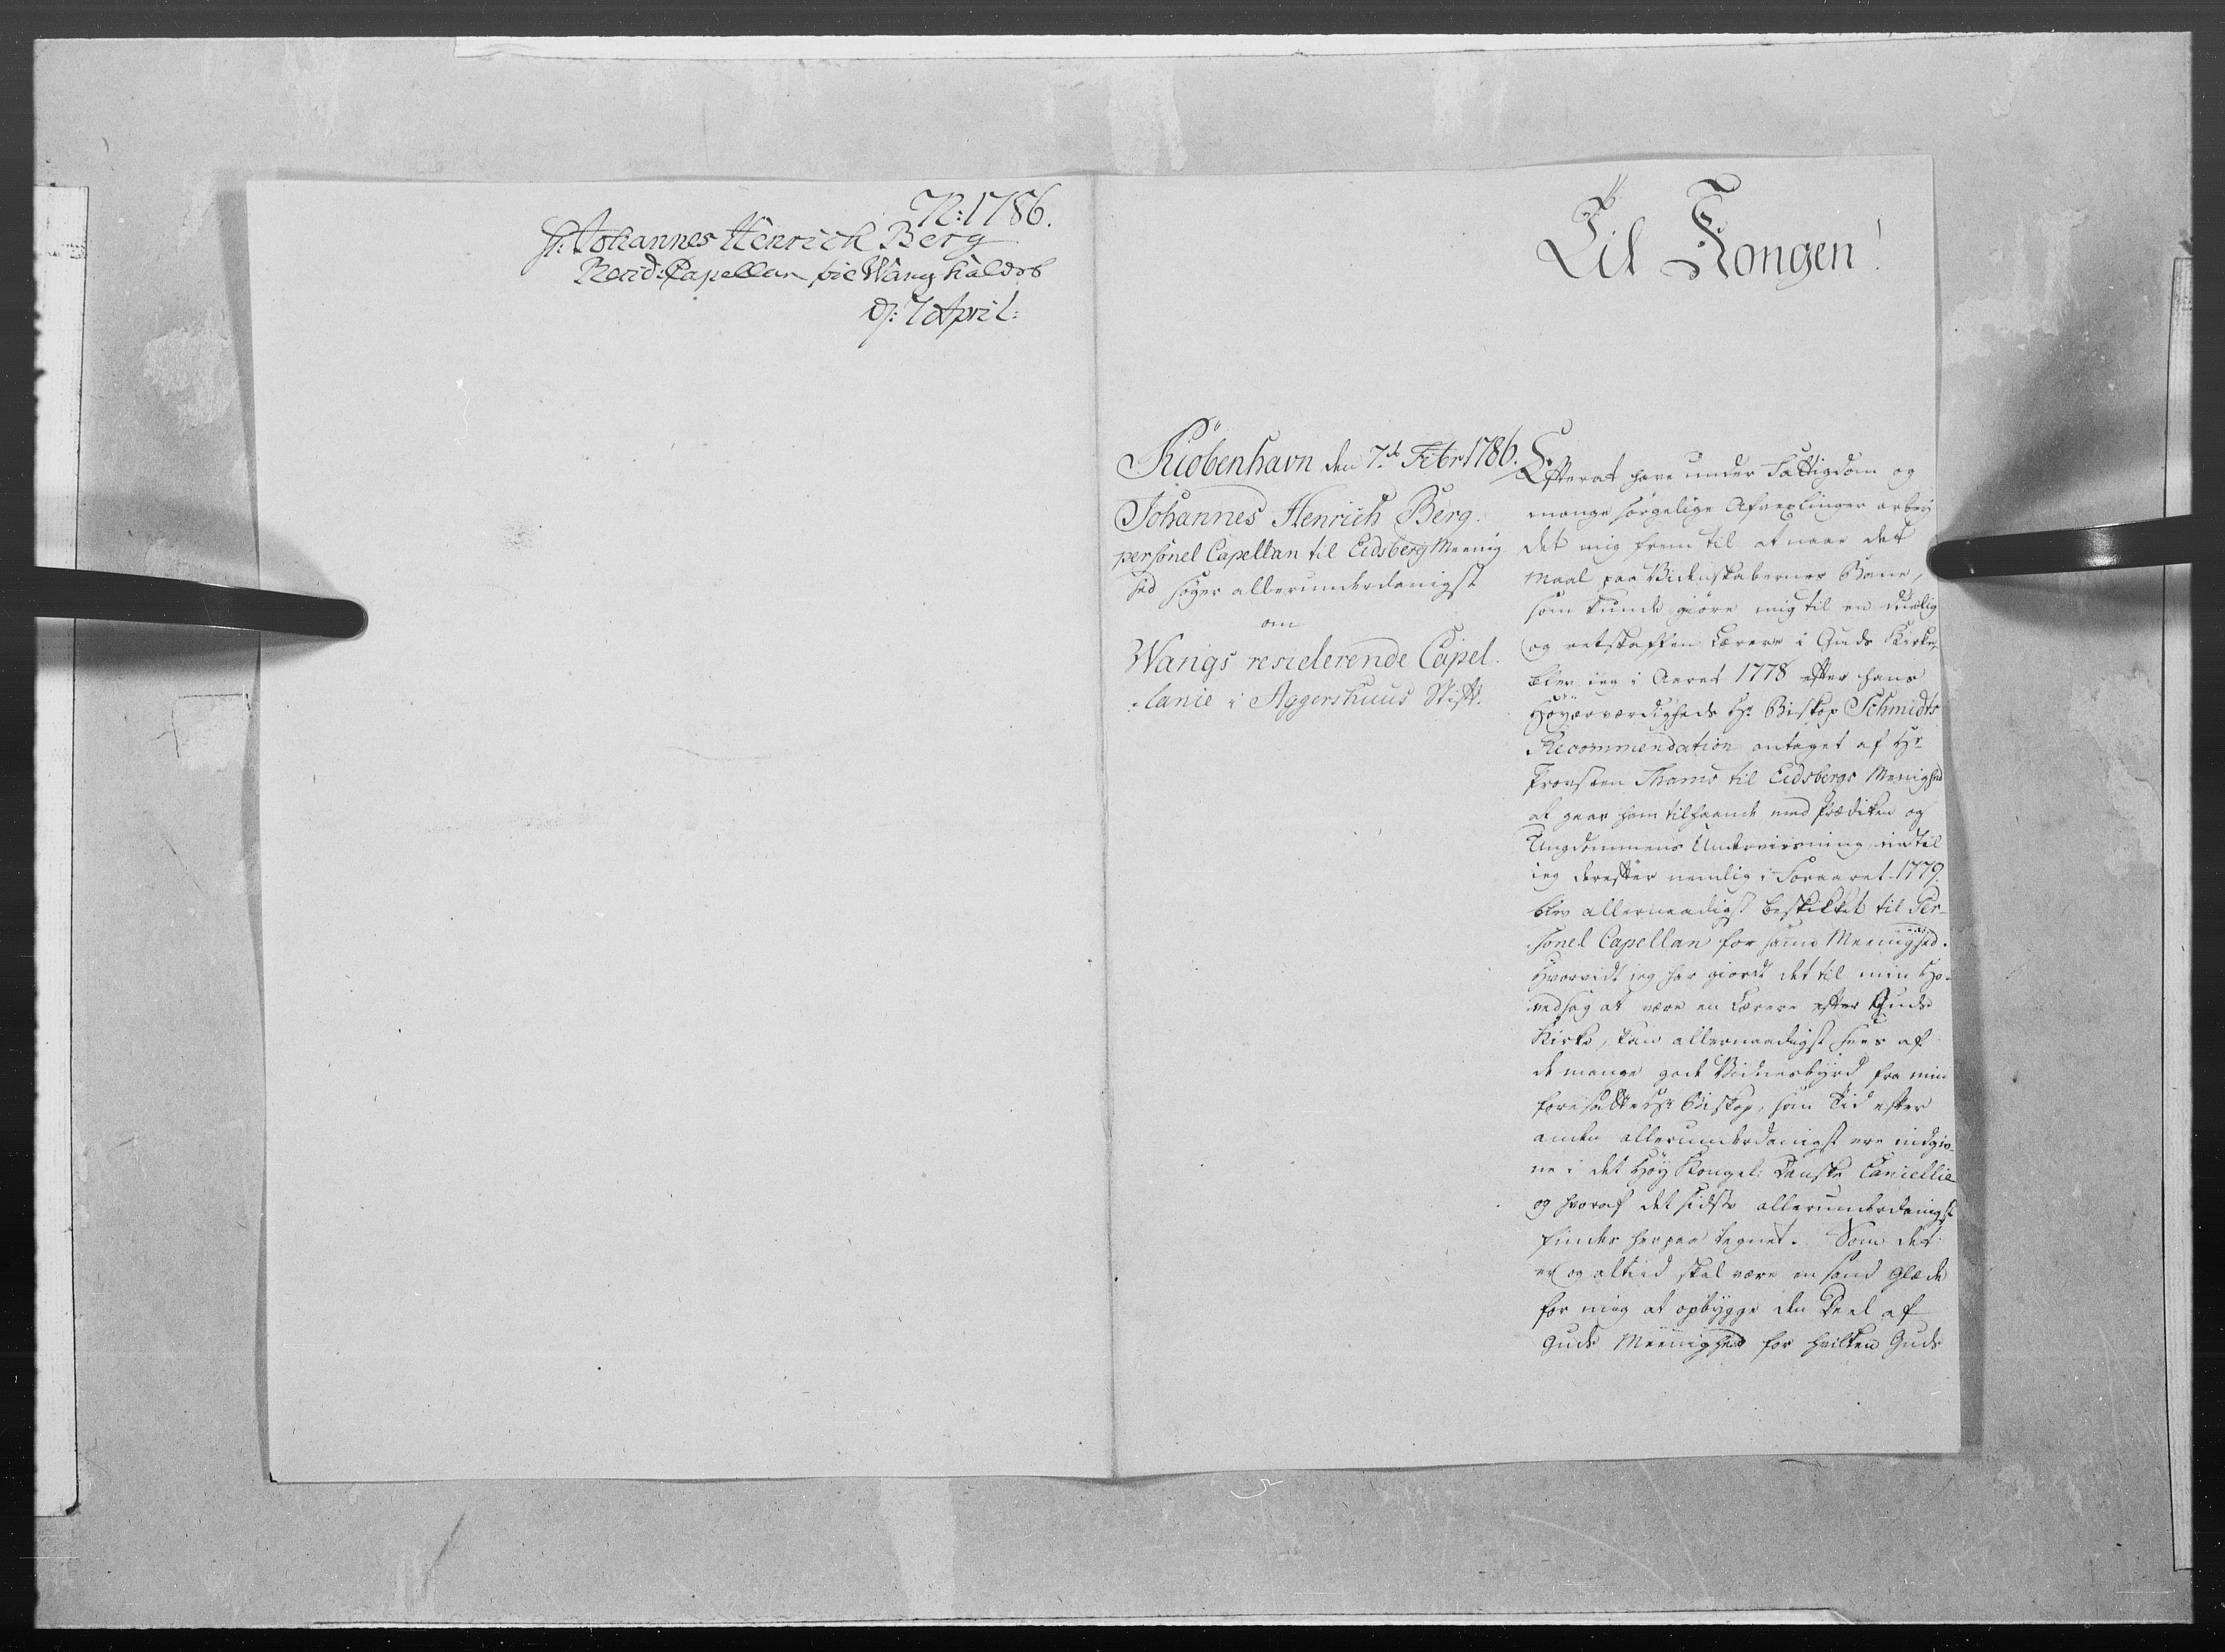 N: 1786.
Hr: Johannes Henrich Berg
Resid: Capellan vie Wang kaldet
D: 7 April:
Til Kongen!
Kiøbenhavn den 7de Febr 1786.
Johannes Henrich Berg.
personel Capellan til Eidsberg Meenig
hed søger allerunderdanigst
om
Wangs residerende Capel
-lanie i Aggershuus Stift.
Efterat have under Fattigdom og
mange sørgelige Afvexlinger arbey
det mig frem til at naae det
Maal paa Videnskabernes Bane,
som kunde giøre mig til en duelig
og retskaffen Lærere i Guds Kirke,
blev ieg i Aaret 1778 efter hans
Høyærværdigheds Hr Biskop Schmidts
Recommendation antaget af Hr
Provsten Thams til Eidsbergs Menighed
at gaae ham tilhaande med Prædiken og
Ungdommens Underviisning, indtil
ieg derefter nemlig i Foraaret 1779.
blev allernaadigst beskikket til Per-
sonel Capellan for samme Meenighed.
Hvorvidt ieg har giordt det til min Ho-
vedsag at være en Lærere efter Guds
Kirke, kan allernaadigst sees af
de mange gode Vidnesbyrd fra min
foresatte Hr Biskop, som Tid efter
anden allerunderdanigst ere indgiv-
ne i det Høy Kongel: Danske Cancellie
og hvoraf det sidste allerunderdanigst
findes herpaa tegnet. Som det
er og altiid skal være en sand Glæde
for mig at opbygge den Deel af
Guds Meenighed for hvilken Guds